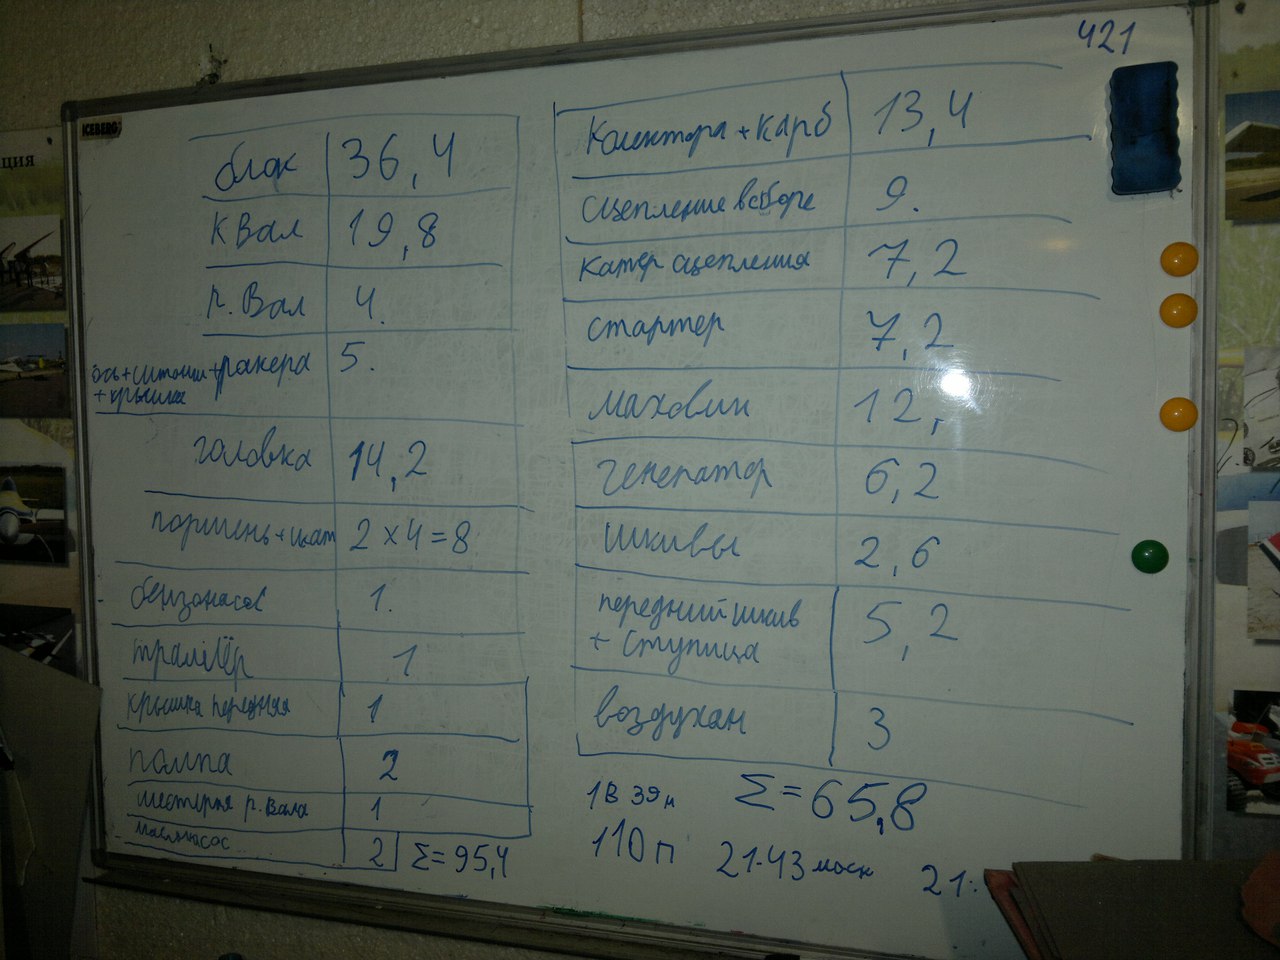 421
ICEBERG
ция
блок 36,4
к вал 19,8
р. Вал 4.
ось+штанги+ракера 5.
+крышка
головка 14,2
поршень+шат 2 x 4 = 8
бензонасос 1.
трамлёр 1
крышка передняя 1
помпа 2
шестерня р. вала 1
маслонасос 2
Σ=95,4
Колектора + карб 13,4
сцепление в сборе 9.
катер сцепления 7,2
стартер 7,2
маховик 12,
генератор 6,2
шкивы 2,6
передний шкив 5,2
+ ступица
воздухан 3
1В 39н Σ=65,8
110п 21-43 моск 21.